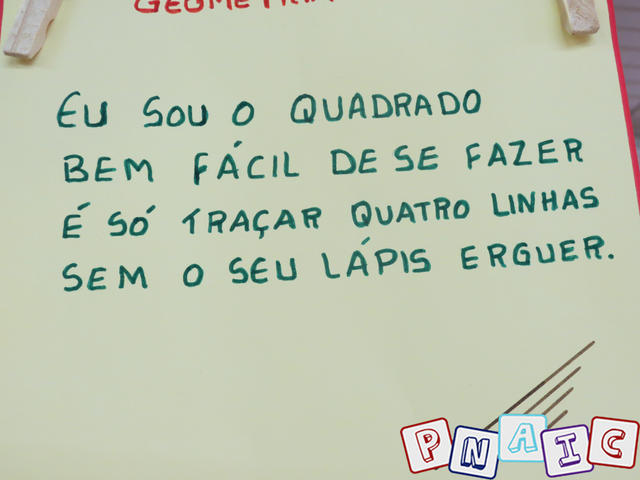 GEOMETRIA
EU SOU O QUADRADO
BEM FÁCIL DE SE FAZER
É SÓ TRAÇAR QUATRO LINHAS
SEM O SEU LÁPIS ERGUER.
PNAIC